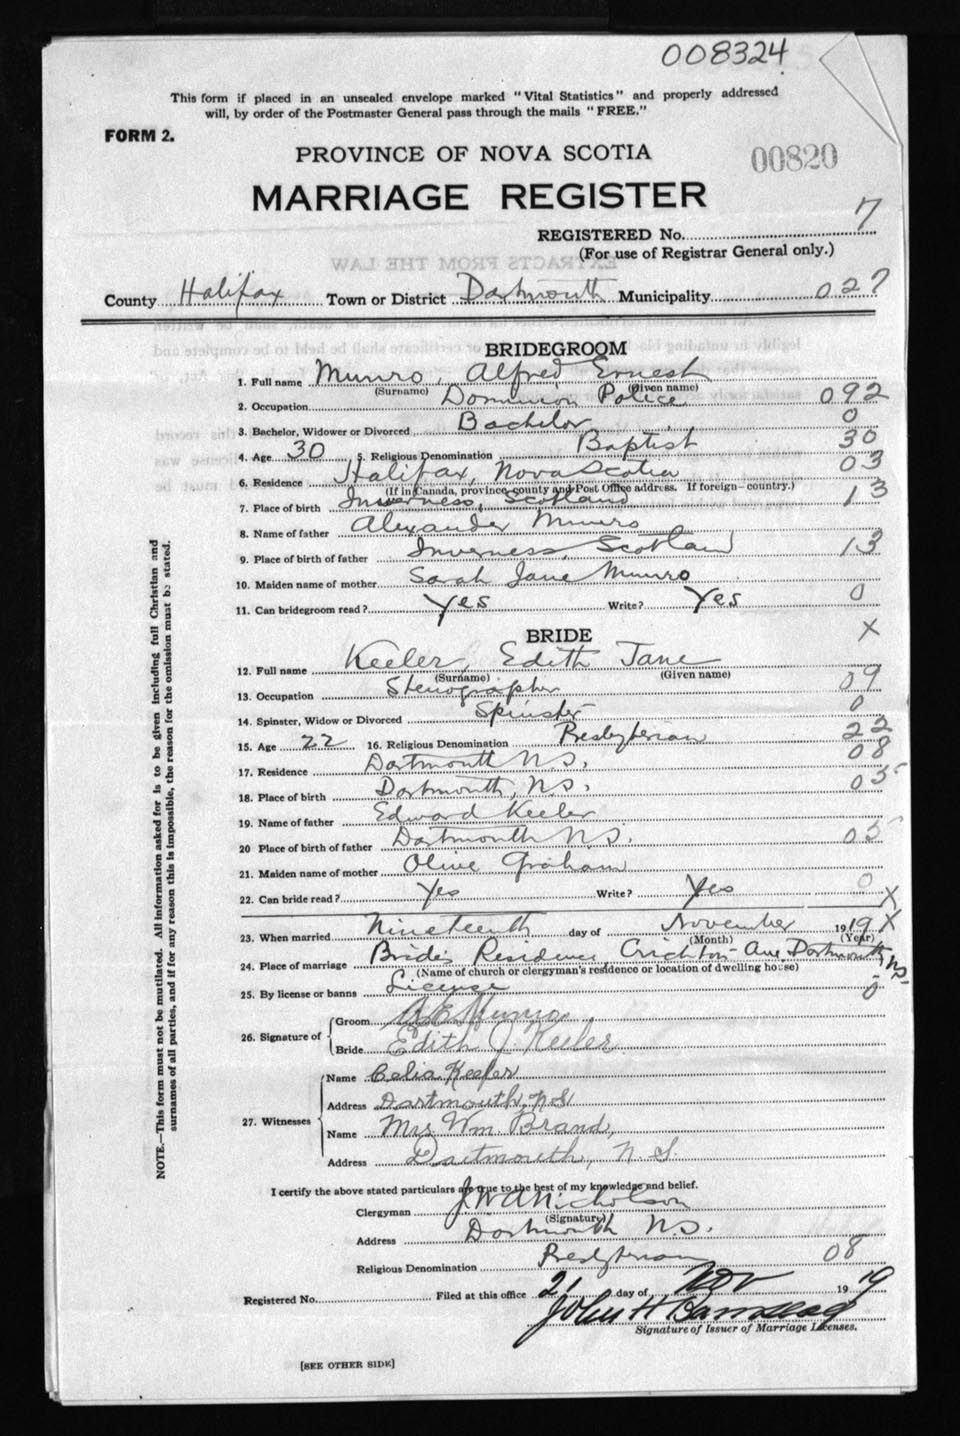 008324
This form if placed in an unsealed envelope marked "Vital Statistics" and properly addressed
will, by order of the Postmaster General pass through the mails "FREE."
FORM 2.
PROVINCE OF NOVA SCOTIA
00820
MARRIAGE REGISTER
REGISTERED No. 7
(For use of Registrar General only.)
EXTRACTS FROM THE LAW
County Halifax Town or District Dartmouth Municipality 027
BRIDEGROOM
1. Full name Munro, Alfred Ernest
(Surname) (Given name)
2. Occupation Dominion Police 092
3. Bachelor, Widower or Divorced Bachelor 0
4. Age 30 5. Religious Denomination Baptist 30
6. Residence Halifax, Nova Scotia 03
(If in Canada, province, county and Post Office address. If foreign—country.)
7. Place of birth Inverness, Scotland 13
8. Name of father Alexander Munro
9. Place of birth of father Inverness, Scotland 13
10. Maiden name of mother Sarah Jane Munro
11. Can bridegroom read? Yes Write? Yes 0
BRIDE X
12. Full name Keeler, Edith Jane
(Surname) (Given name)
13. Occupation Stenographer 09
14. Spinster, Widow or Divorced Spinster 0
15. Age 22 16. Religious Denomination Presbyterian 22
17. Residence Dartmouth N.S. 08
18. Place of birth Dartmouth, N.S. 05
19. Name of father Edward Keeler
20 Place of birth of father Dartmouth N.S. 05
21. Maiden name of mother Olive Graham
22. Can bride read? Yes Write? Yes 0
X
23. When married Nineteenth day of November 1919 X
(Month) (Year)
24. Place of marriage Bride's Residence, Crichton Ave, Dartmouth N.S.
(Name of church or clergyman's residence or location of dwelling house)
25. By license or banns License 0
26. Signature of Groom A E Munro
Bride Edith J. Keeler
27. Witnesses Name Celia Keeler
Address Dartmouth, N S
Name Mrs. Wm. Brand,
Address Dartmouth, N. S.
I certify the above stated particulars are true to the best of my knowledge and belief.
Clergyman J W A Nicholson
(Signature)
Address Dartmouth N.S.
Religious Denomination Presbyterian 08
Registered No. Filed at this office 21 day of Nov 1919
John H
Signature of Issuer of Marriage Licenses.
[SEE OTHER SIDE]
NOTE.—This form must not be mutilated. All information asked for is to be given including full Christian and
surnames of all parties, and if for any reason this is impossible, the reason for the omission must be stated.